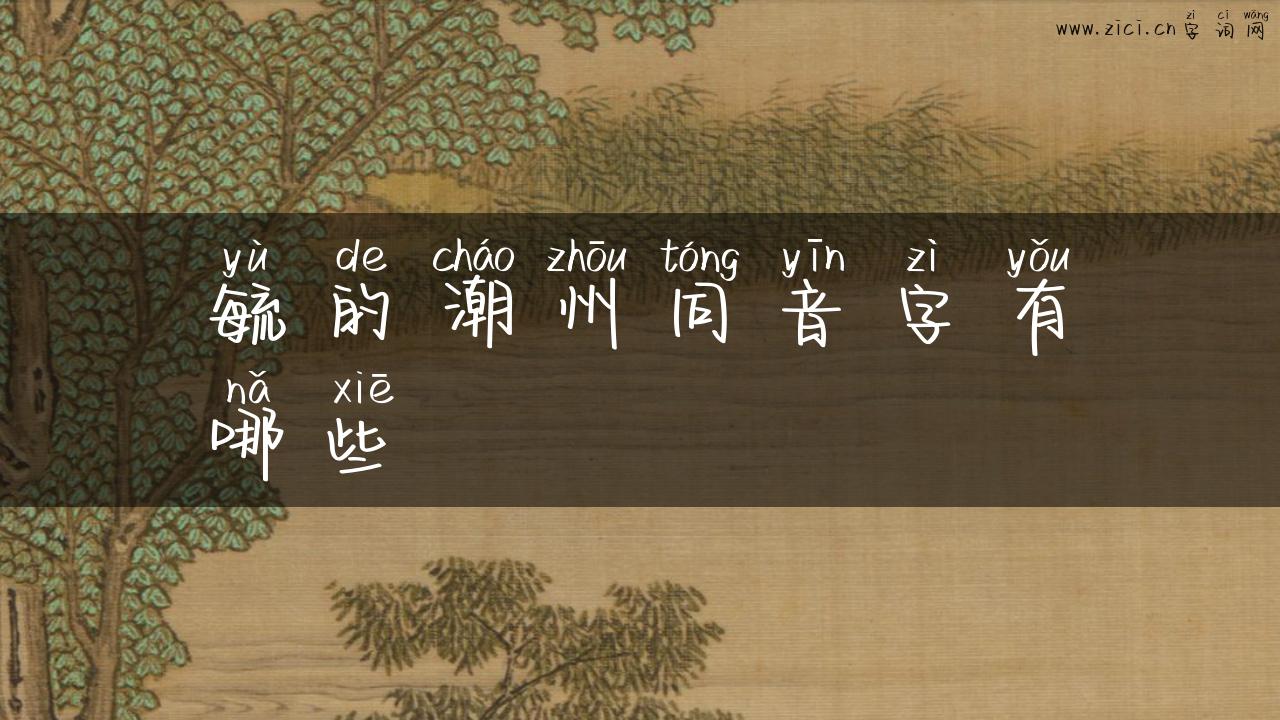 zì cí wǎng
www.zici.cn字词网
yù de cháo zhōu tóng yīn zì yǒu
毓的潮州同音字有
nǎ xiē
哪些